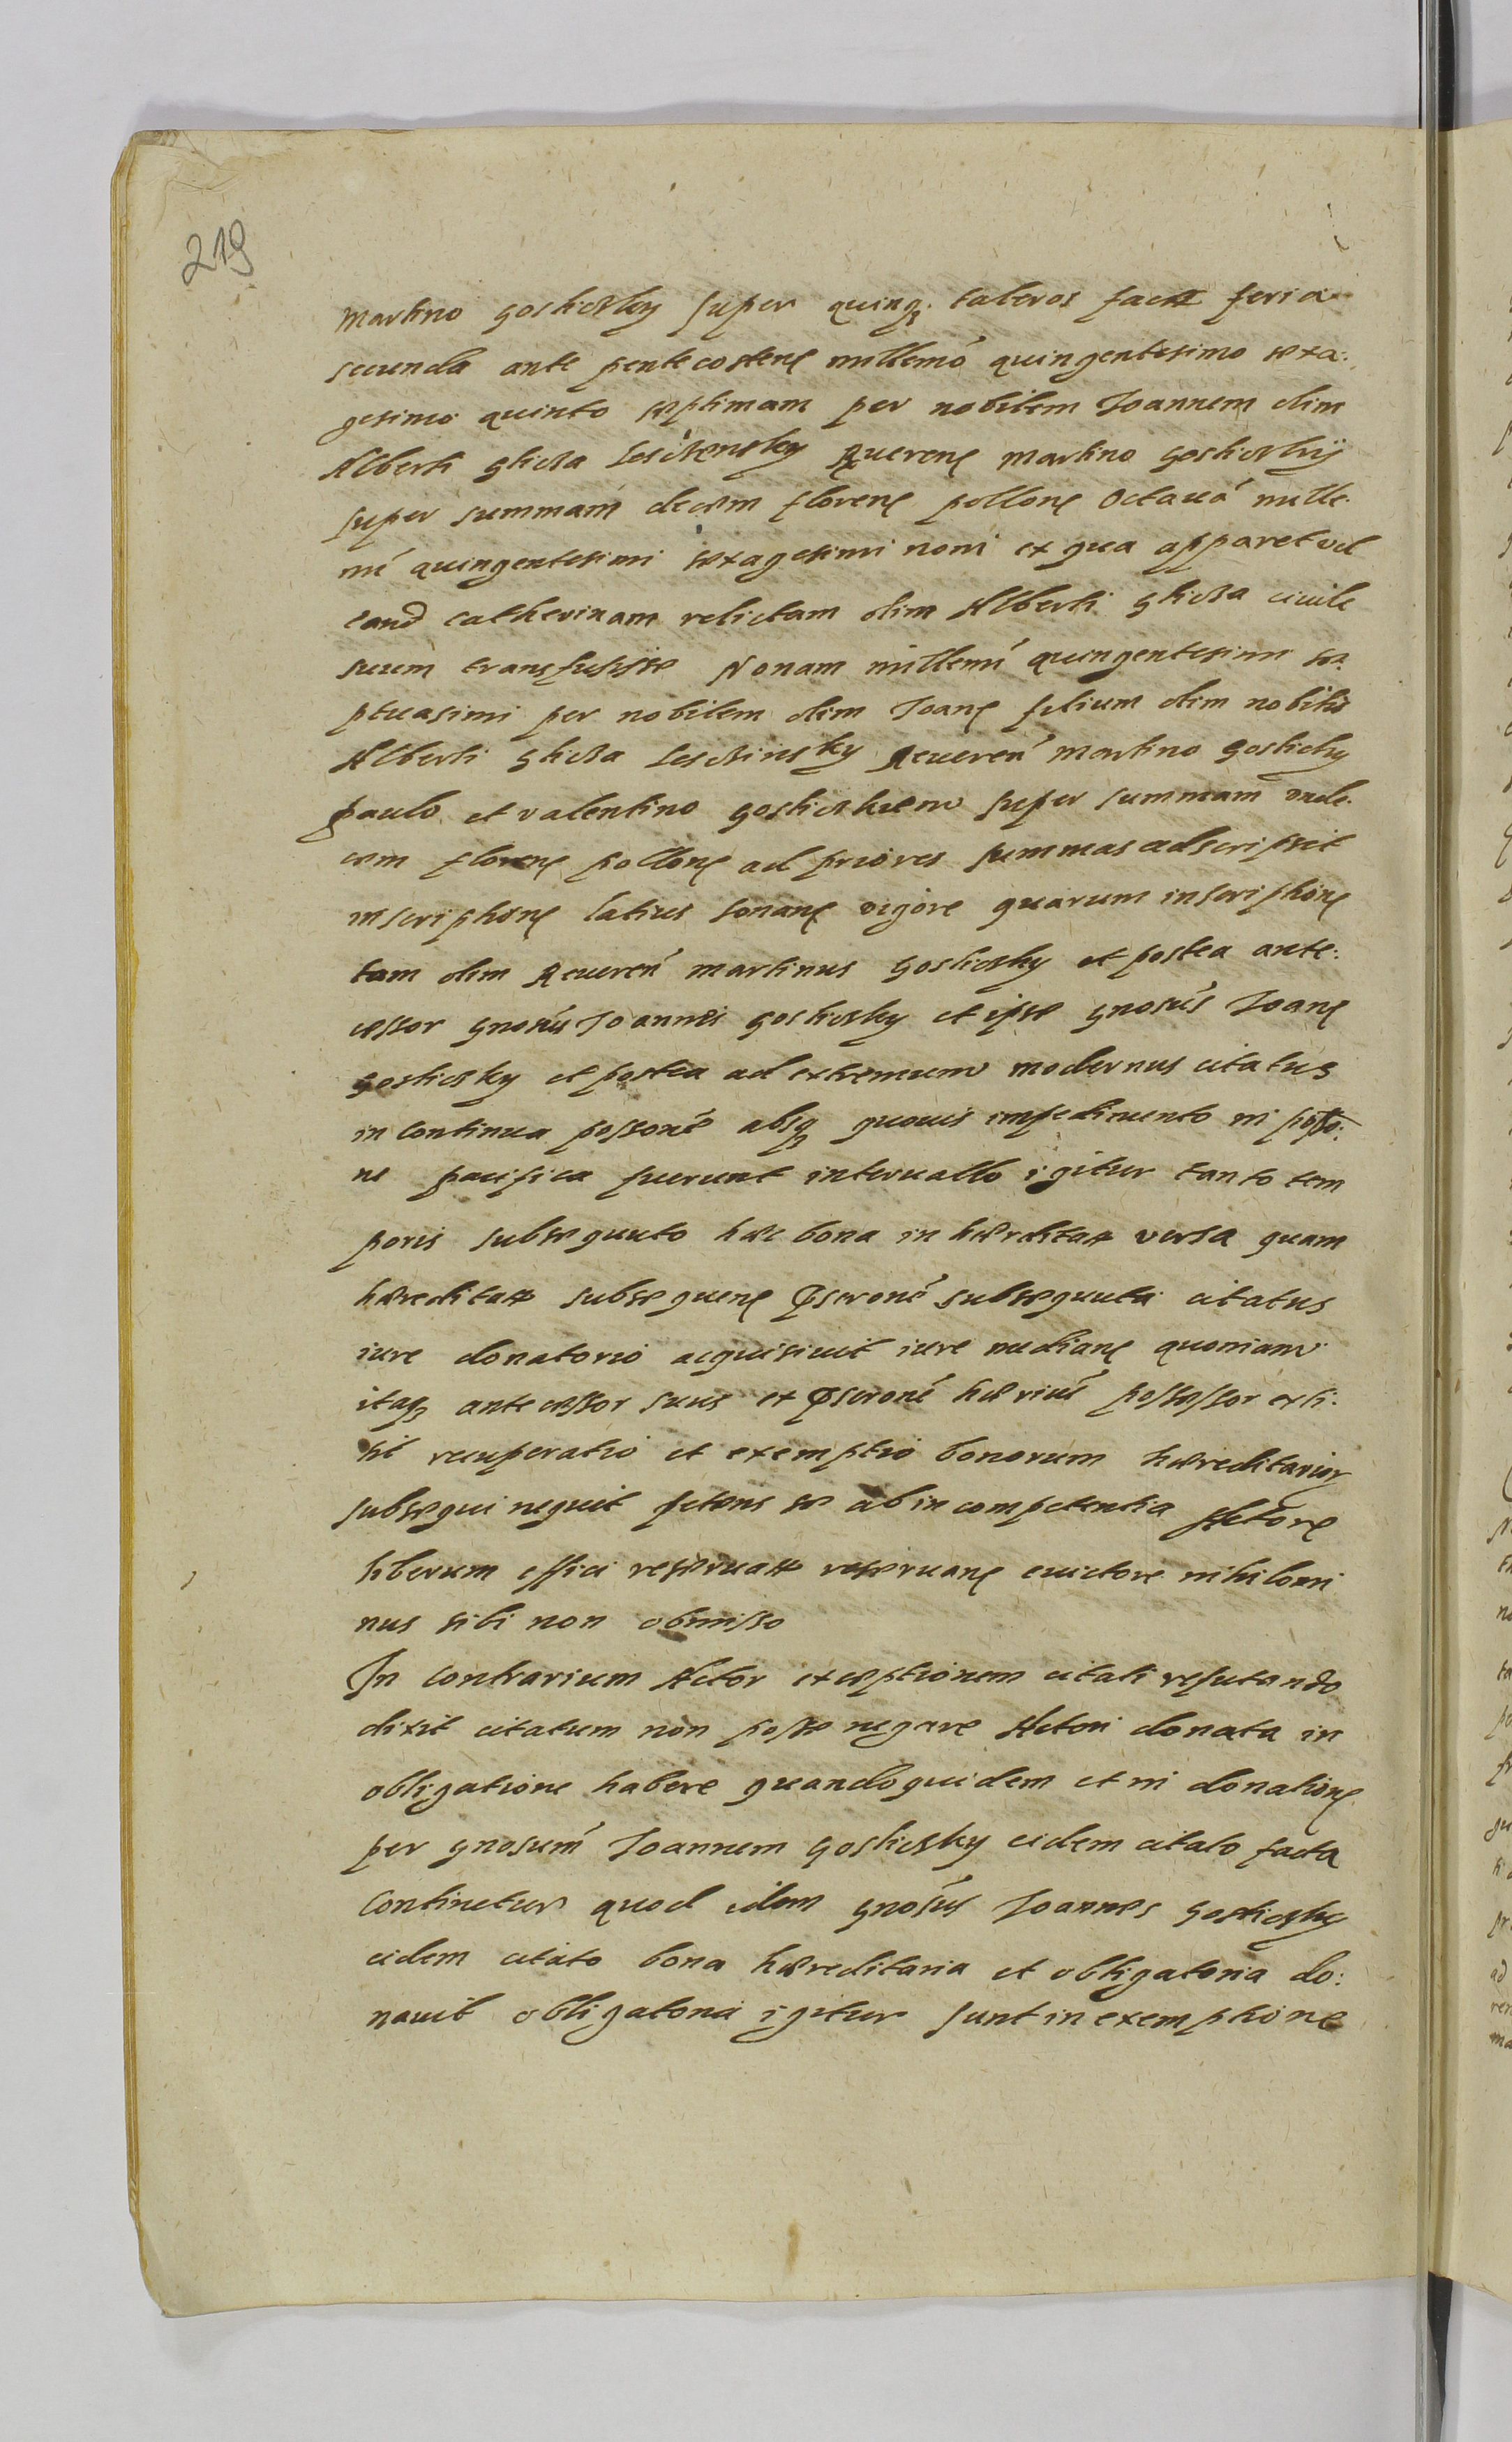 219
Martino Goslicsky super quinq taleros fact feria
secunda ante pentecosten millemo quingentesimo sexa:
gesimo quinto septimam per nobilem Joannem olim
Alberti Glicza Lesczensky Reverend Martino Goslicskÿ
super summam decem floren pollon Octavá mille
mi quingentesimi sexagesimi noni ex qua apparet vel
eand Catherinam relictam olim Alberti Glicza civile
suum transfusisse Nonam millemi quingentesimi se
ptuasimi per nobilem olim Joan filium olim nobilis
Alberti Glicza Lesczinsky Reueren Martino Goslicky
Paulo et valentino Goslickiem super summam unde
cem floren pollon ad priores summas adscripsit
inscription latius sonan vigore quarum inscription
tam olim Reueren Martinus Goslicsky et postea ante:
cessor gnosus Joannes Goslicsky et ipse gnosus Joan
Goslicsky et postea ad extremum modernus citatus
in continua possone absq quouis impedimento in posso:
ne pacifica fuerunt interuallo igitur tanto tem
poris subsequuto hæc bona in hærditat versa quam
hæreditat subsequen pscrone subsequuta citatus
iure donatorio acquisiuit iure median quoniam
itaq antecessor suus ex pscrone hærius possessor exti:
tit recuperatio et exemptio bonorum hæreditarior
subsequi nequit petens se ab incompetentia Actore
liberum effici reseruatt reseruan euictore nihilomi
nus sibi non obmisso
In contrarium Actor exceptionem citati refutando
dixit citatum non posse negare Actori donata in
obligatione habere quandoquidem et in donation
per gnosum Joannem Goslicsky eidem citato facta
continetur quod idem gnosus Joannes Goslicsky
eidem citato bona hæreditaria et obligatoria do:
nauit obligatoria igitur sunt in exemptione